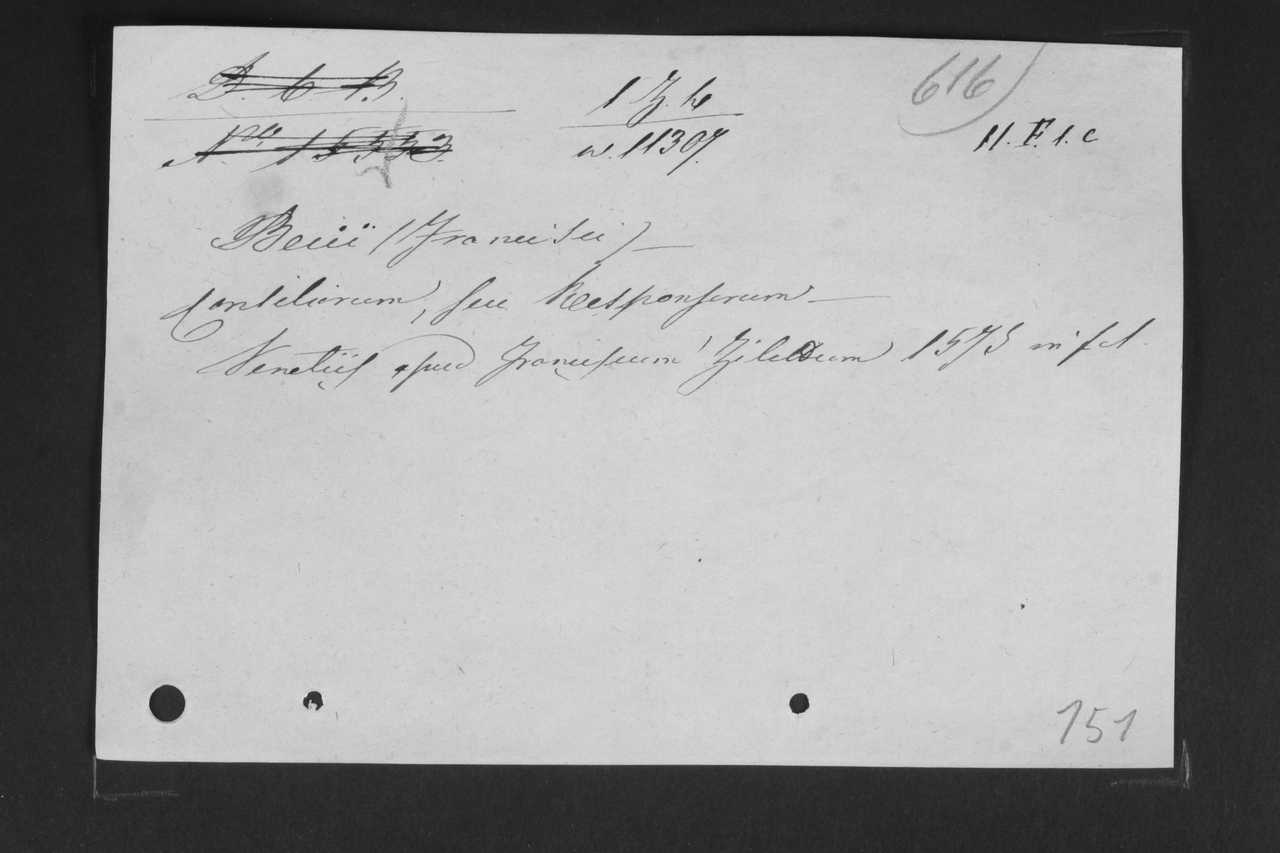 D. 6 B.
No 15333.
1 Z. h
w. 11307.
616
11. F. 1. c
Becii (Francisci) —
Consiliorum, seu Responsorum —
Venetiis apud Franciscum Ziletum 1575 in fol.
151